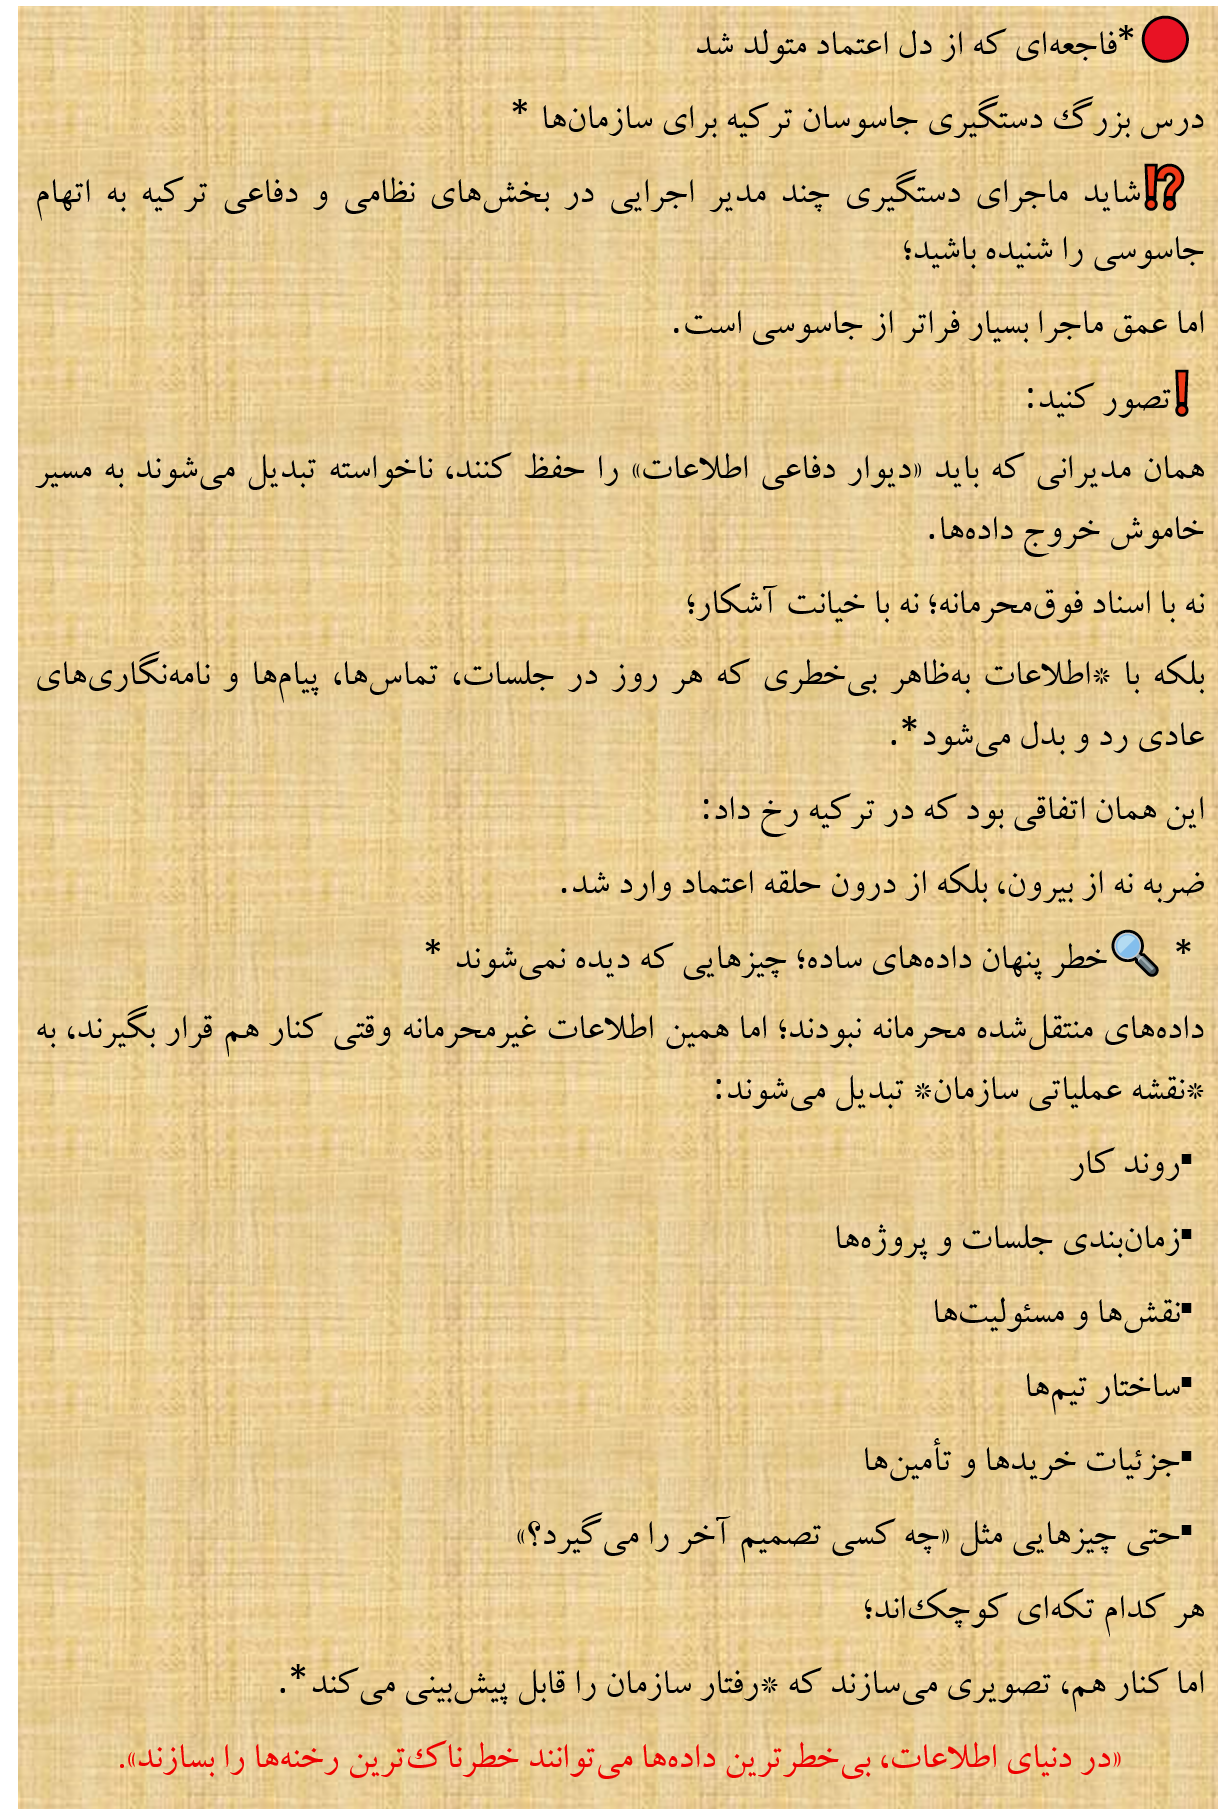 🔴*فاجعه‌ای که از دل اعتماد متولد شد
درس بزرگ دستگیری جاسوسان ترکیه برای سازمان‌ها *
⁉️شاید ماجرای دستگیری چند مدیر اجرایی در بخش‌های نظامی و دفاعی ترکیه به اتهام
جاسوسی را شنیده باشید؛
اما عمق ماجرا بسیار فراتر از جاسوسی است.
❗تصور کنید:
همان مدیرانی که باید «دیوار دفاعی اطلاعات» را حفظ کنند، ناخواسته تبدیل می‌شوند به مسیر
خاموش خروج داده‌ها.
نه با اسناد فوق‌محرمانه؛ نه با خیانت آشکار؛
بلکه با *اطلاعات به‌ظاهر بی‌خطری که هر روز در جلسات، تماس‌ها، پیام‌ها و نامه‌نگاری‌های
عادی رد و بدل می‌شود*.
این همان اتفاقی بود که در ترکیه رخ داد:
ضربه نه از بیرون، بلکه از درون حلقه اعتماد وارد شد.
* 🔍خطر پنهان داده‌های ساده؛ چیزهایی که دیده نمی‌شوند *
داده‌های منتقل‌شده محرمانه نبودند؛ اما همین اطلاعات غیرمحرمانه وقتی کنار هم قرار بگیرند، به
*نقشه عملیاتی سازمان* تبدیل می‌شوند:
▪روند کار
▪زمان‌بندی جلسات و پروژه‌ها
▪نقش‌ها و مسئولیت‌ها
▪ساختار تیم‌ها
▪جزئیات خریدها و تأمین‌ها
▪حتی چیزهایی مثل «چه کسی تصمیم آخر را می‌گیرد؟»
هر کدام تکه‌ای کوچک‌اند؛
اما کنار هم، تصویری می‌سازند که *رفتار سازمان را قابل پیش‌بینی می‌کند*.
«در دنیای اطلاعات، بی‌خطرترین داده‌ها می‌توانند خطرناک‌ترین رخنه‌ها را بسازند».